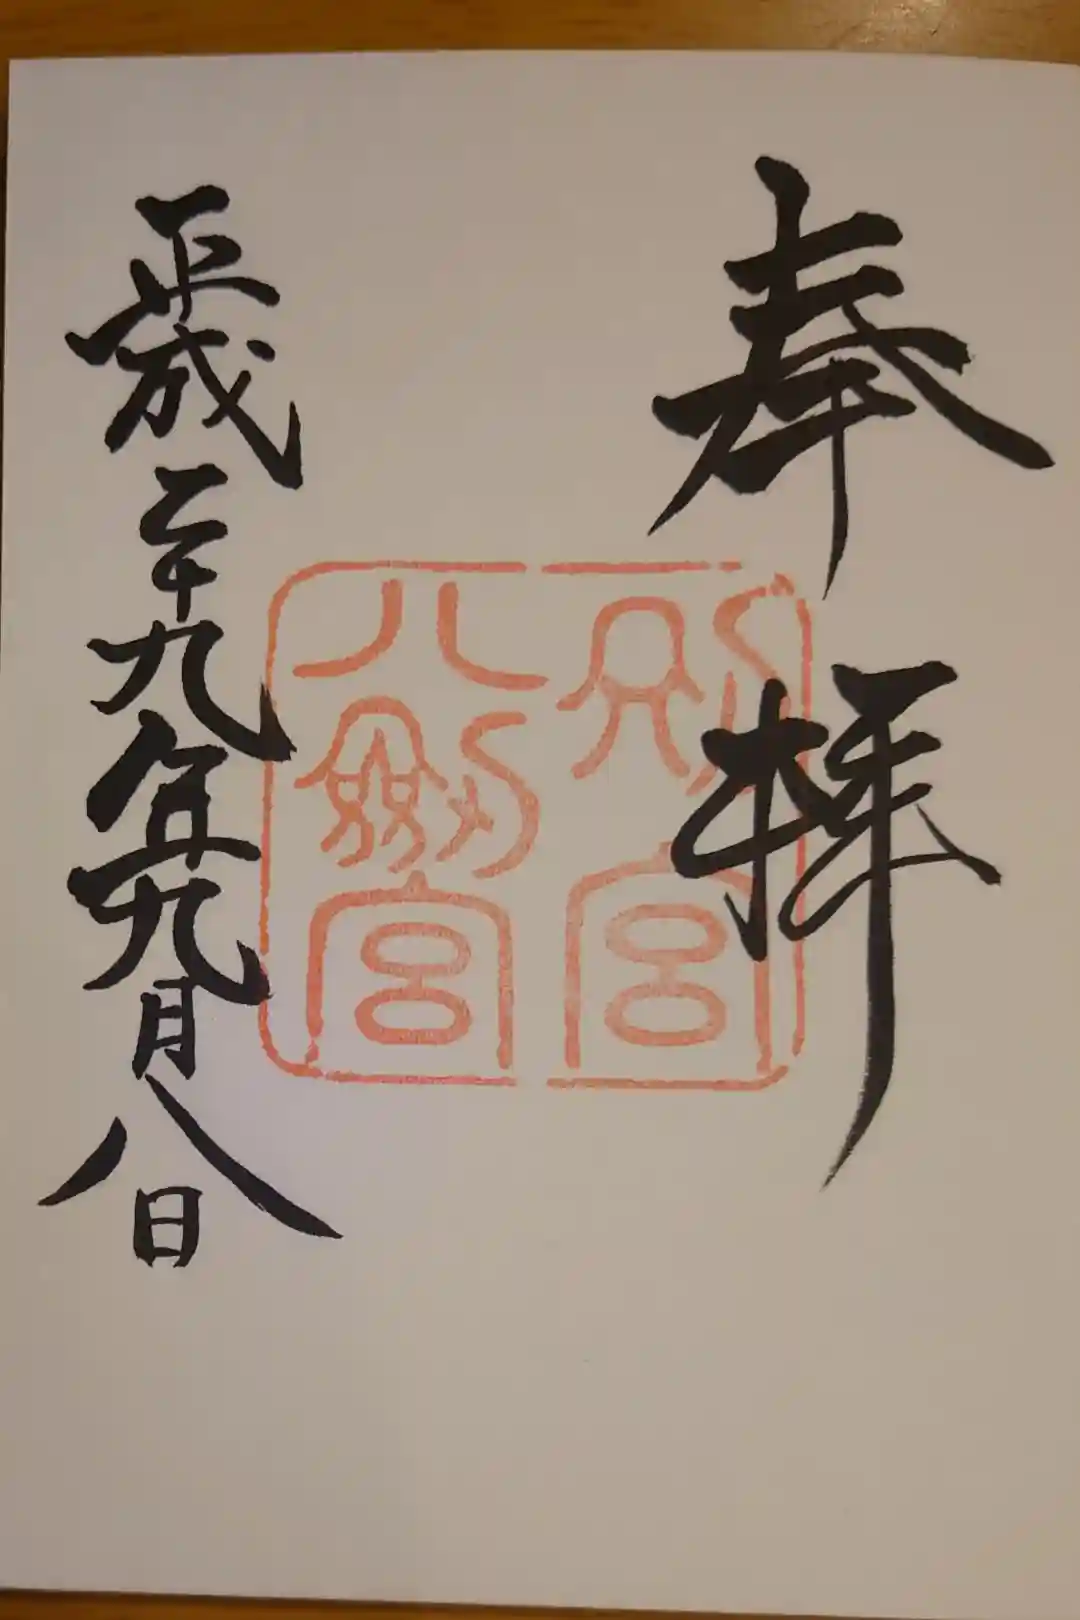 奉拝
別宮
八剱宮
平成二十九年九月八日